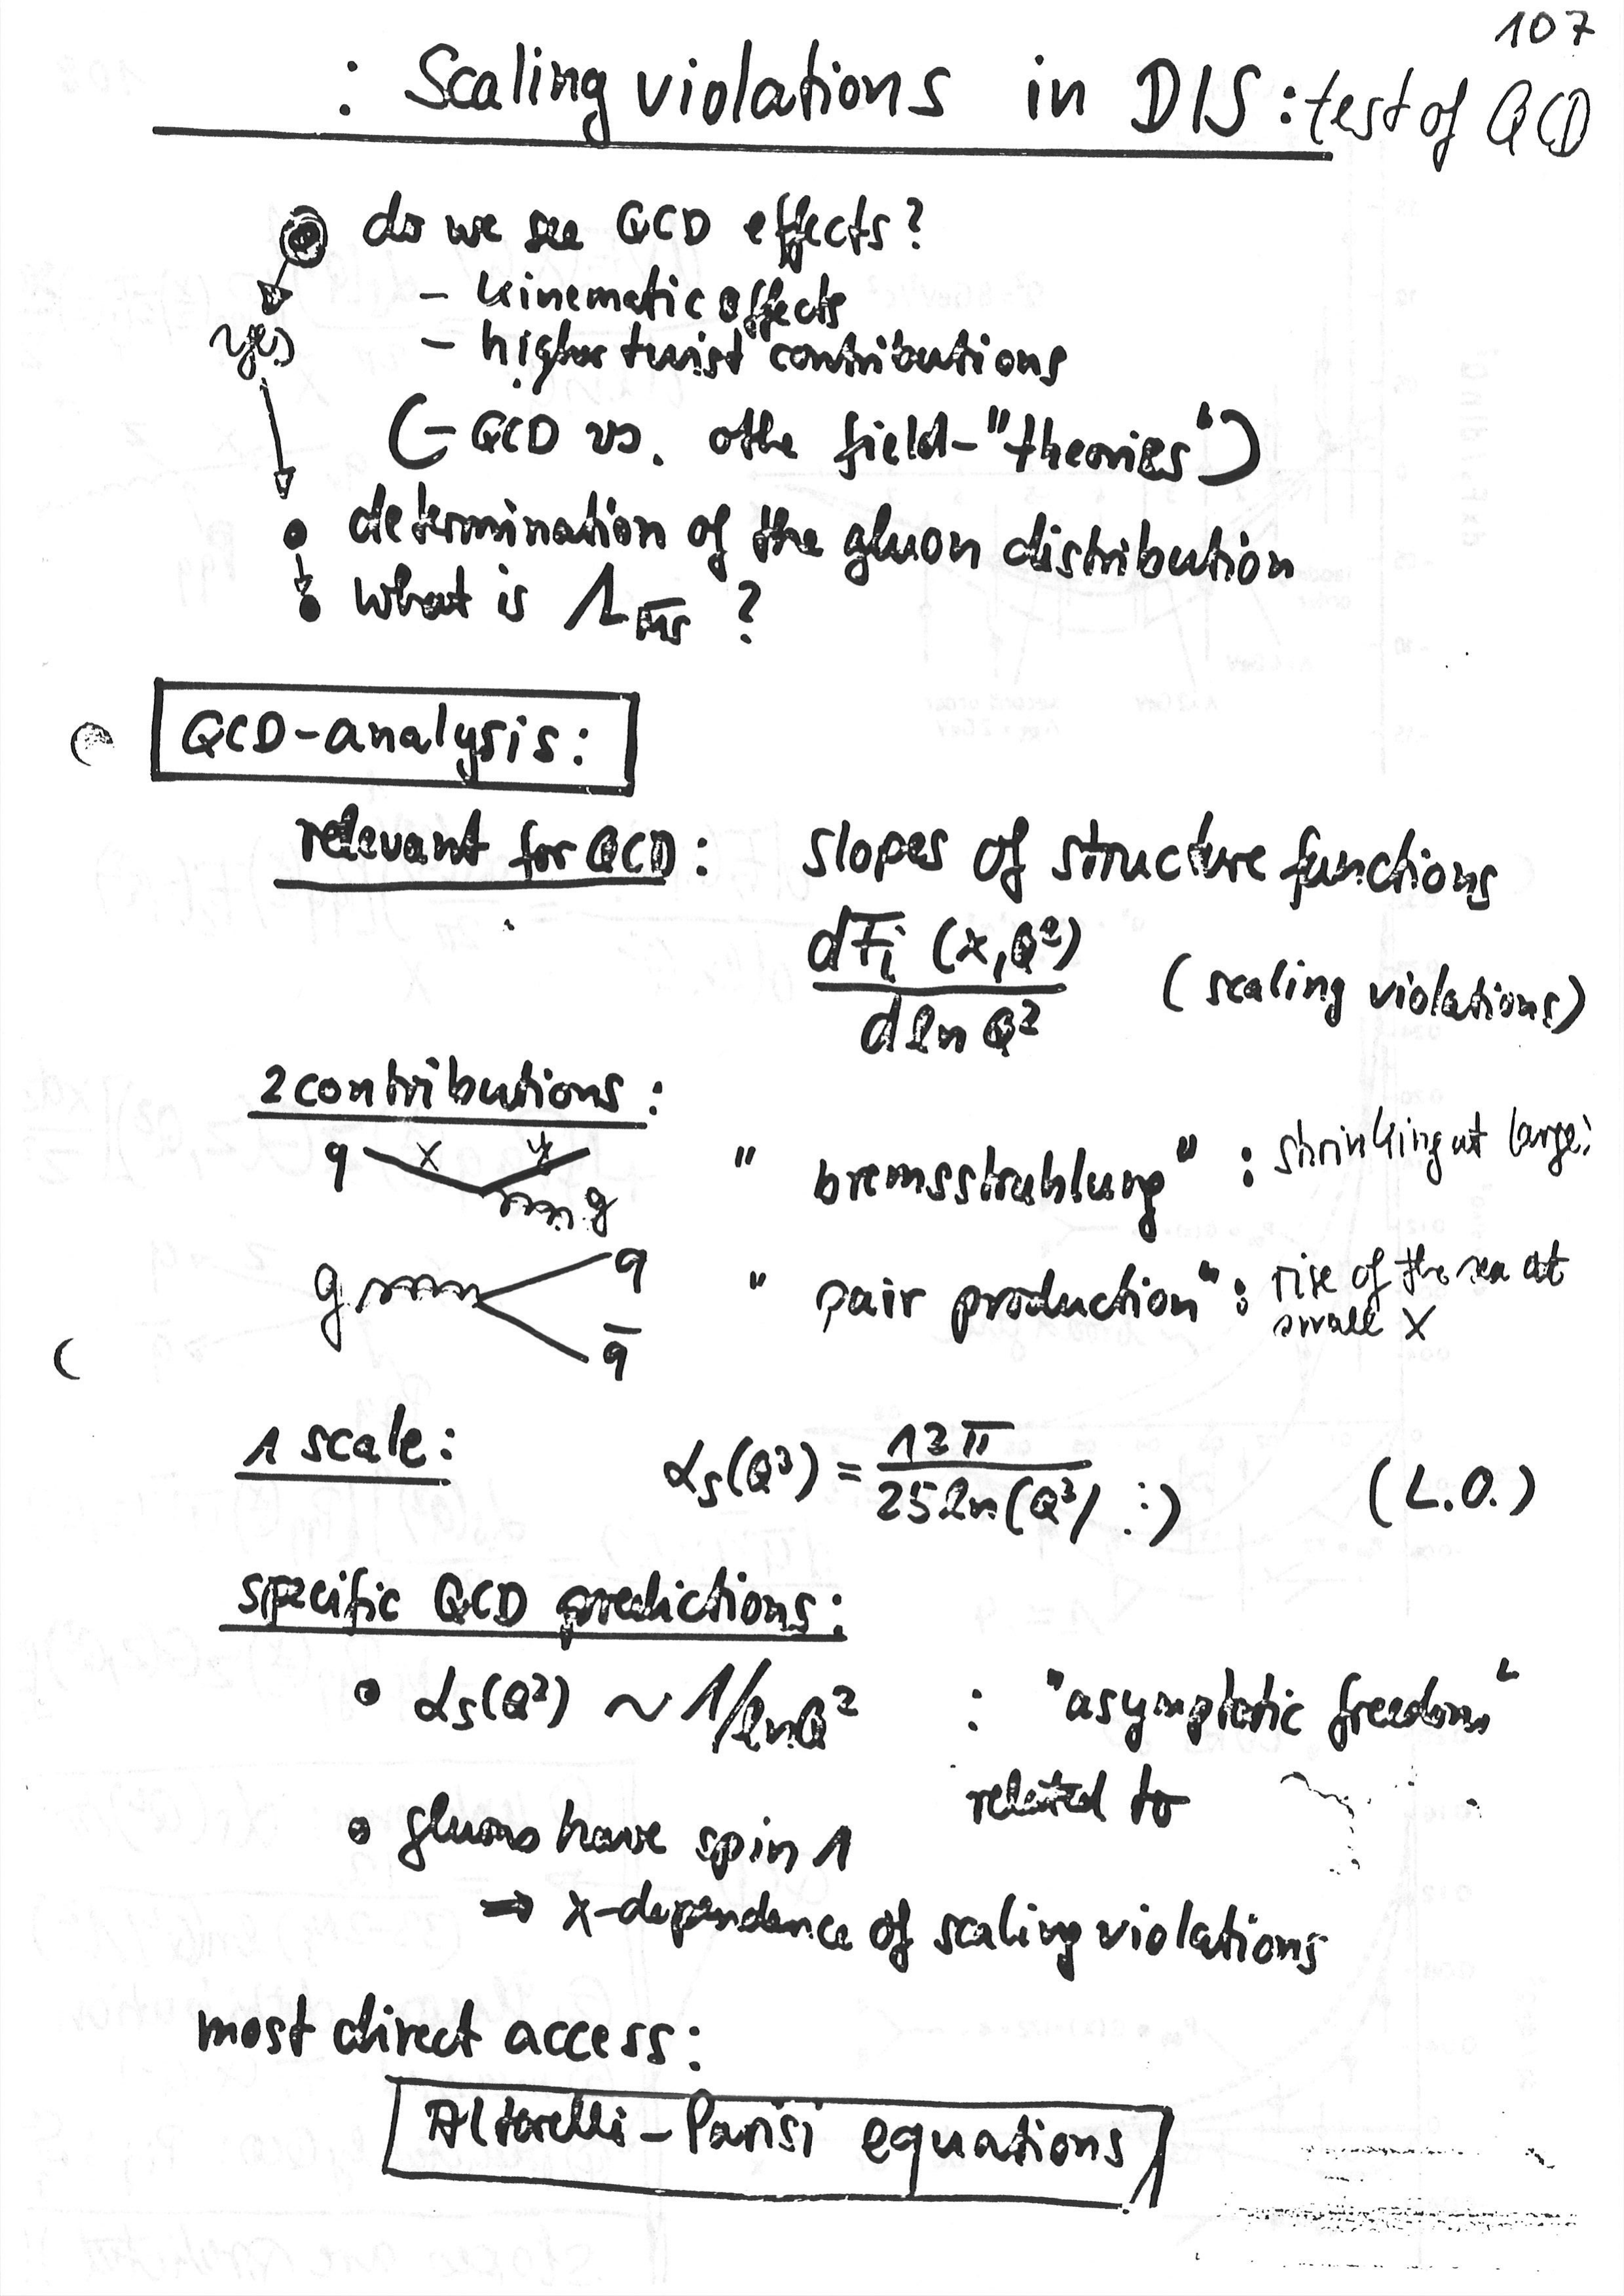 107
: Scaling violations in DIS : test of QCD
do we see QCD effects?
- kinematic effects
yes
- "higher twist" contributions
(- QCD vs. othe field-"theories")
determination of the gluon distribution
What is Λ_MS̅ ?
QCD-analysis:
relevant for QCD: slopes of structure functions
dFi (x,Q²)
d ln Q²
(scaling violations)
2 contributions:
q x y g
"bremsstrahlung" : shrinking at large
g q q̅
"pair production" : rise of the sea at
small x
1 scale: αs(Q²) = 12π / 25 ln(Q²/ :) (L.O.)
specific QCD predictions:
• αs(Q²) ~ 1/lnQ² : "asymptotic freedom"
related to
• gluons have spin 1
⇒ x-dependence of scaling violations
most direct access:
Altarelli-Parisi equations